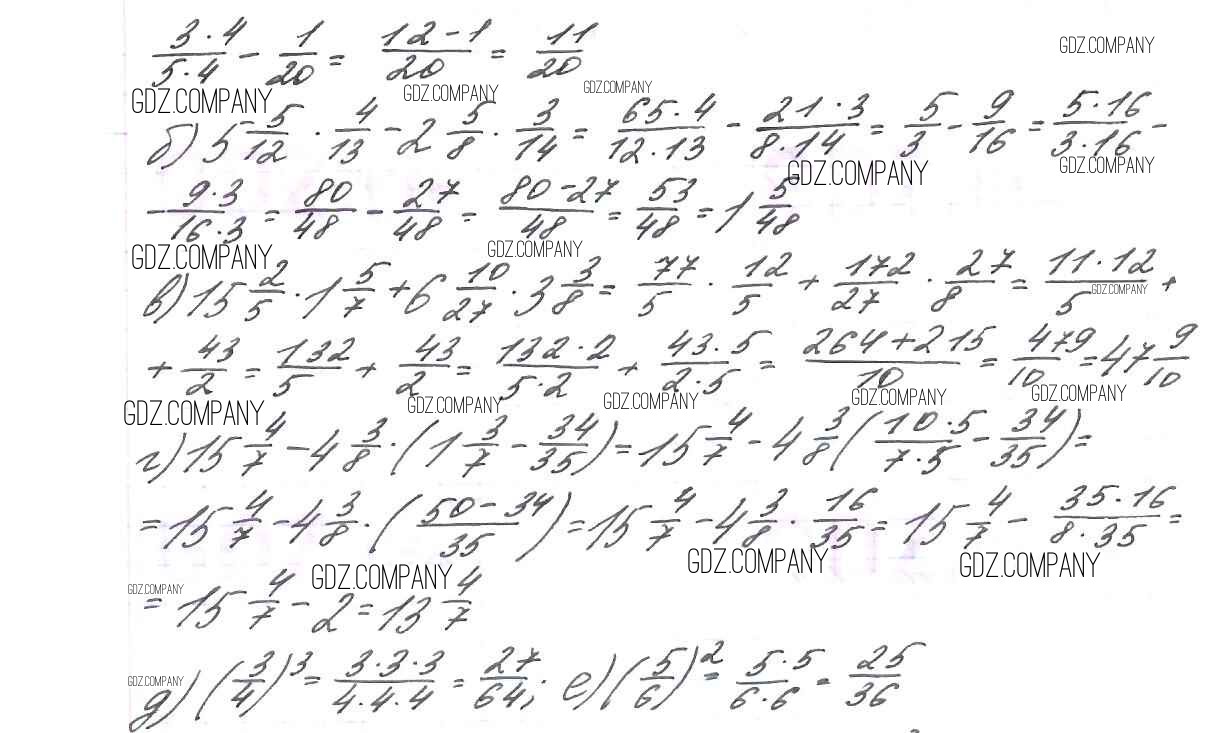 3·4/5·4 − 1/20 = 12−1/20 = 11/20
GDZ.COMPANY
GDZ.COMPANY GDZ.COMPANY GDZ.COMPANY
б) 5 5/12 · 4/13 − 2 5/8 · 3/14 = 65·4/12·13 − 21·3/8·14 = 5/3 − 9/16 = 5·16/3·16 −
GDZ.COMPANY GDZ.COMPANY
− 9·3/16·3 = 80/48 − 27/48 = 80−27/48 = 53/48 = 1 5/48
GDZ.COMPANY GDZ.COMPANY
в) 15 2/5 · 1 5/7 + 6 10/27 · 3 3/8 = 77/5 · 12/5 + 172/27 · 27/8 = 11·12/5 +
GDZ.COMPANY
+ 43/2 = 132/5 + 43/2 = 132·2/5·2 + 43·5/2·5 = 264+215/10 = 479/10 = 47 9/10
GDZ.COMPANY GDZ.COMPANY GDZ.COMPANY GDZ.COMPANY GDZ.COMPANY
г) 15 4/7 − 4 3/8 · (1 3/7 − 34/35) = 15 4/7 − 4 3/8 (10·5/7·5 − 34/35) =
= 15 4/7 − 4 3/8 · (50−34/35) = 15 4/7 − 4 3/8 · 16/35 = 15 4/7 − 35·16/8·35 =
GDZ.COMPANY GDZ.COMPANY GDZ.COMPANY GDZ.COMPANY
= 15 4/7 − 2 = 13 4/7
д) (3/4)³ = 3·3·3/4·4·4 = 27/64; е) (5/6)² = 5·5/6·6 = 25/36
GDZ.COMPANY